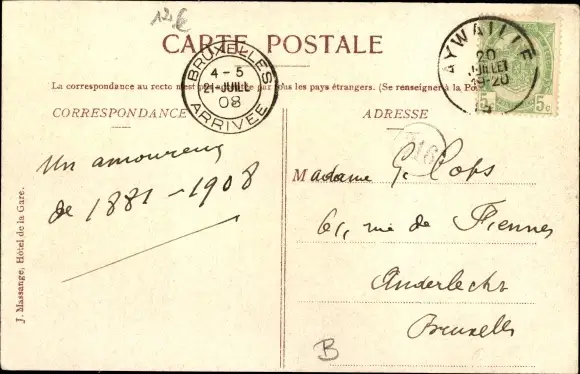 12€
CARTE POSTALE
BRUXELLES
4-5
21 JUILL
08
ARRIVÉE
AYWAILLE
20
JUILLET
19-20
5c 5c
La correspondance au recto n'est pas par tous les pays étrangers. (Se renseigner à la Po
CORRESPONDANCE
ADRESSE
16
Un amoureux
de 1881-1908
Madame G. Cops
61, rue de Fiennes
Anderlecht
Bruxelles
B
J. Massange, Hôtel de la Gare.